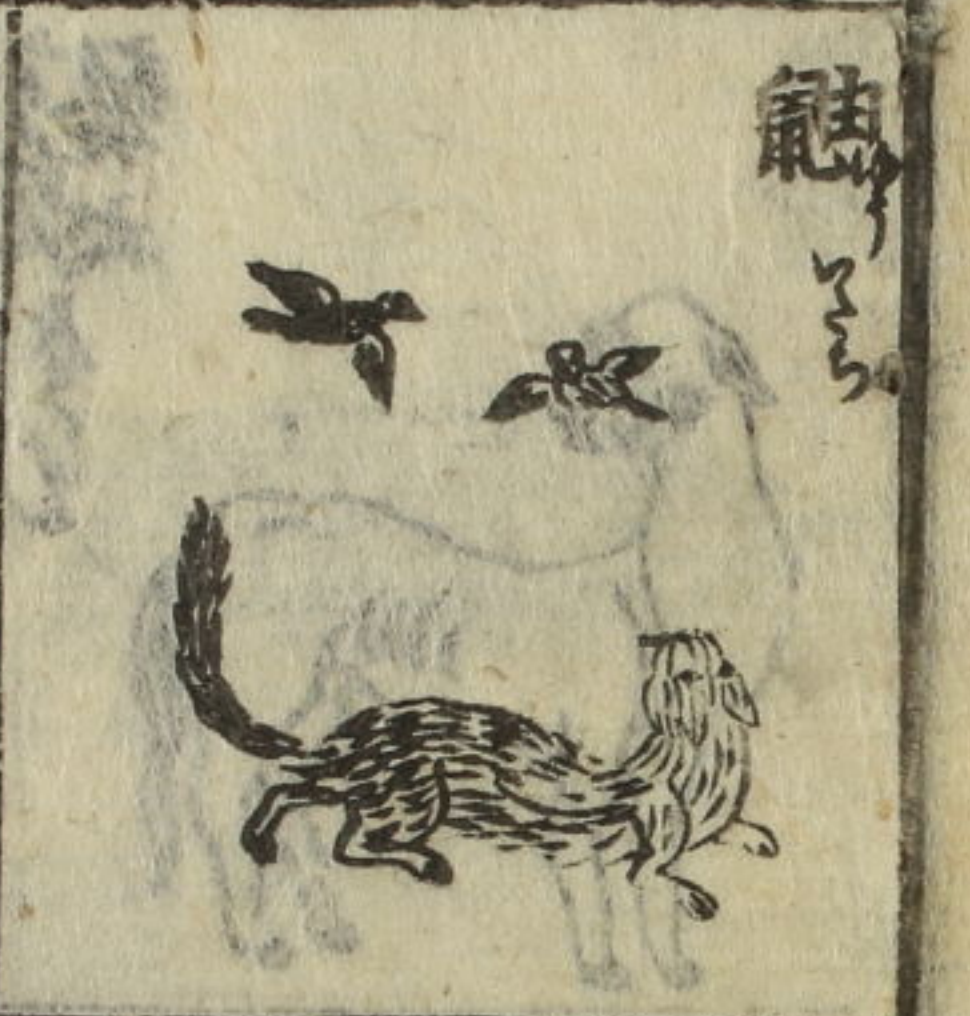 鼬
ゆう
いたち